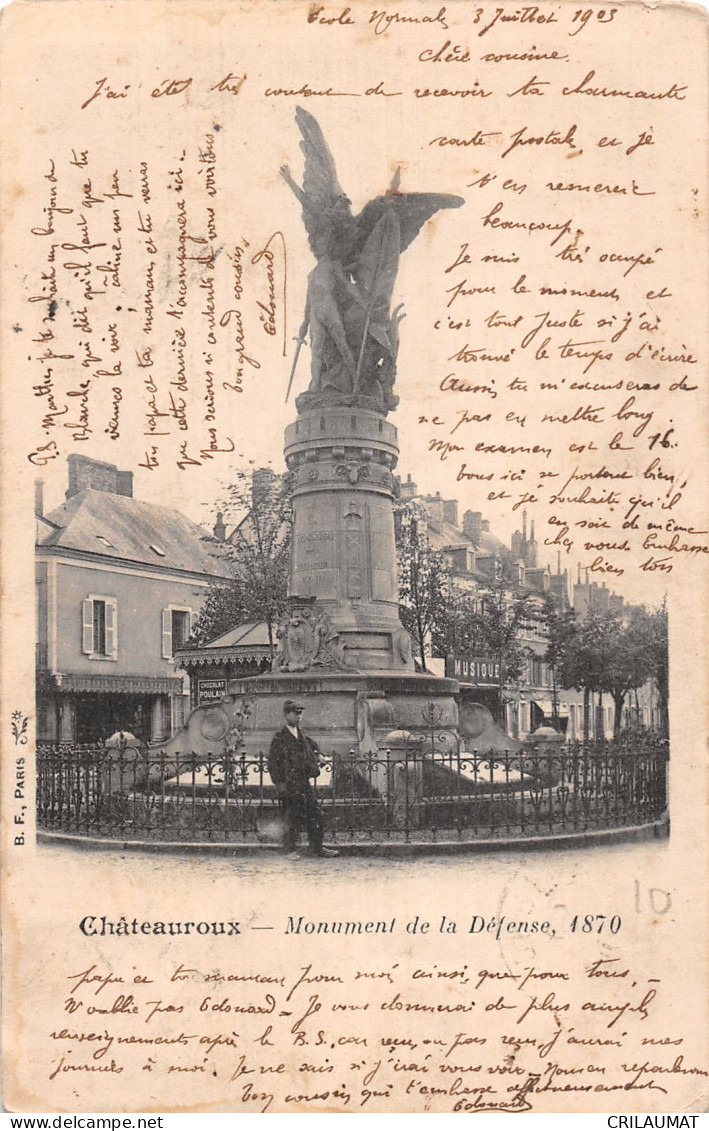 École Normale 3 Juillet 1903
chère cousine.
J'ai été très content de recevoir ta charmante
carte postale, et je
t'en remercie
beaucoup.
Je suis très occupé
pour le moment et
c'est tout juste si j'ai
trouvé le temps d'écrire
Aussi tu m'excuseras de
ne pas en mettre long.
Mon examen est le 16.
Tous ici se portent bien,
et je souhaite qu'il
en soit de même
chez vous. J'embrasse
bien tout
papa et ta maman pour moi ainsi que pour tous,
N'oublie pas Edouard. Je vous donnerai de plus amples
renseignements après le B.S., car reçu ou pas reçu, j'aurai mes
journées à moi. Je ne sais si j'irai vous voir. Nous en reparlerons
Ton cousin qui t'embrasse affectueusement
Edouard
P.S. Marthe je te souhaite un bonjour de
Blanche, qui dit qu'il faut que tu
viennes la voir. câline un peu
ton papa et ta maman, et tu verras
que cette dernière t'accompagnera ici.
Nous serions si contents de vous voir toutes
ton grand cousin,
Edouard
CHOCOLAT
POULAIN
MUSIQUE
B. F., PARIS
Châteauroux — Monument de la Défense, 1870
10
CRILAUMAT